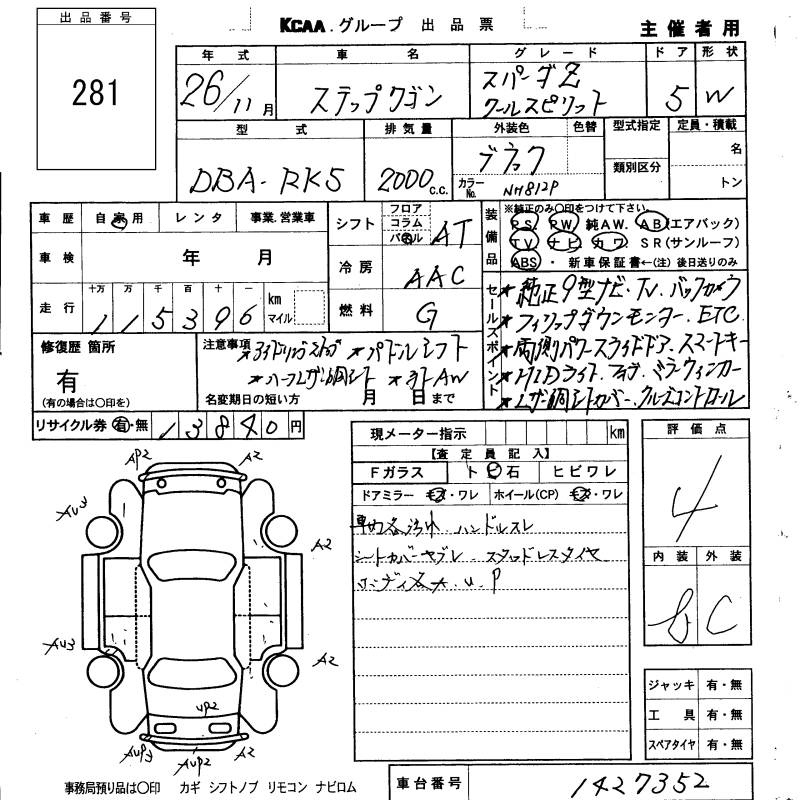 出品番号
281
KCAA.グループ 出品票
主催者用
年式 車名 グレード ドア 形状
26/11月 ステップワゴン スパーダZ クールスピリット 5 W
型式 排気量 外装色 色替 型式指定 定員・積載
DBA-RK5 2000c.c. ブラック カラーNo. NH812P 類別区分 名 トン
車歴 自家用 レンタ 事業.営業車
車検 年 月
走行 十万 万 千 百 十 一 km マイル
115396
シフト フロア コラム パネル AT
冷房 AAC
燃料 G
装備品 ※純正のみ〇印をつけて下さい。
PS PW 純AW. AB(エアバック)
TV ナビ カワ SR(サンルーフ)
ABS・新車保証書←(注)後日送りのみ
セールスポイント
★純正9型ナビ.TV.バックカメラ
★フィリップダウンモニター.ETC
★両側パワースライドドア.スマートキー
★HIDライト.フォグ.ミラーウィンカー
★レザー調シートカバー.クルーズコントロール
修復歴 箇所
有
(有の場合は〇印を)
注意事項 ★アイドリングストップ ★パドルシフト
★ハーフレザー調シート ★社外AW
名変期日の短い方 月 日まで
リサイクル券 有・無 13840円
現メーター指示 km
【査定員記入】
Fガラス トビ石 ヒビワレ
ドアミラー キズ・ワレ ホイール(CP) キズ・ワレ
車内各汚れ.ハンドルスレ
シートカバーヤブレ.スタッドレスタイヤ
ボディ各A.U.P
評価点
4
内装 外装
B C
ジャッキ 有・無
工具 有・無
スペアタイヤ 有・無
AP2 A2
AU3 A2
AU3 A2
UP2
AUP3 AUP2 A2
事務局預り品は〇印 カギ シフトノブ リモコン ナビロム
車台番号 1427352